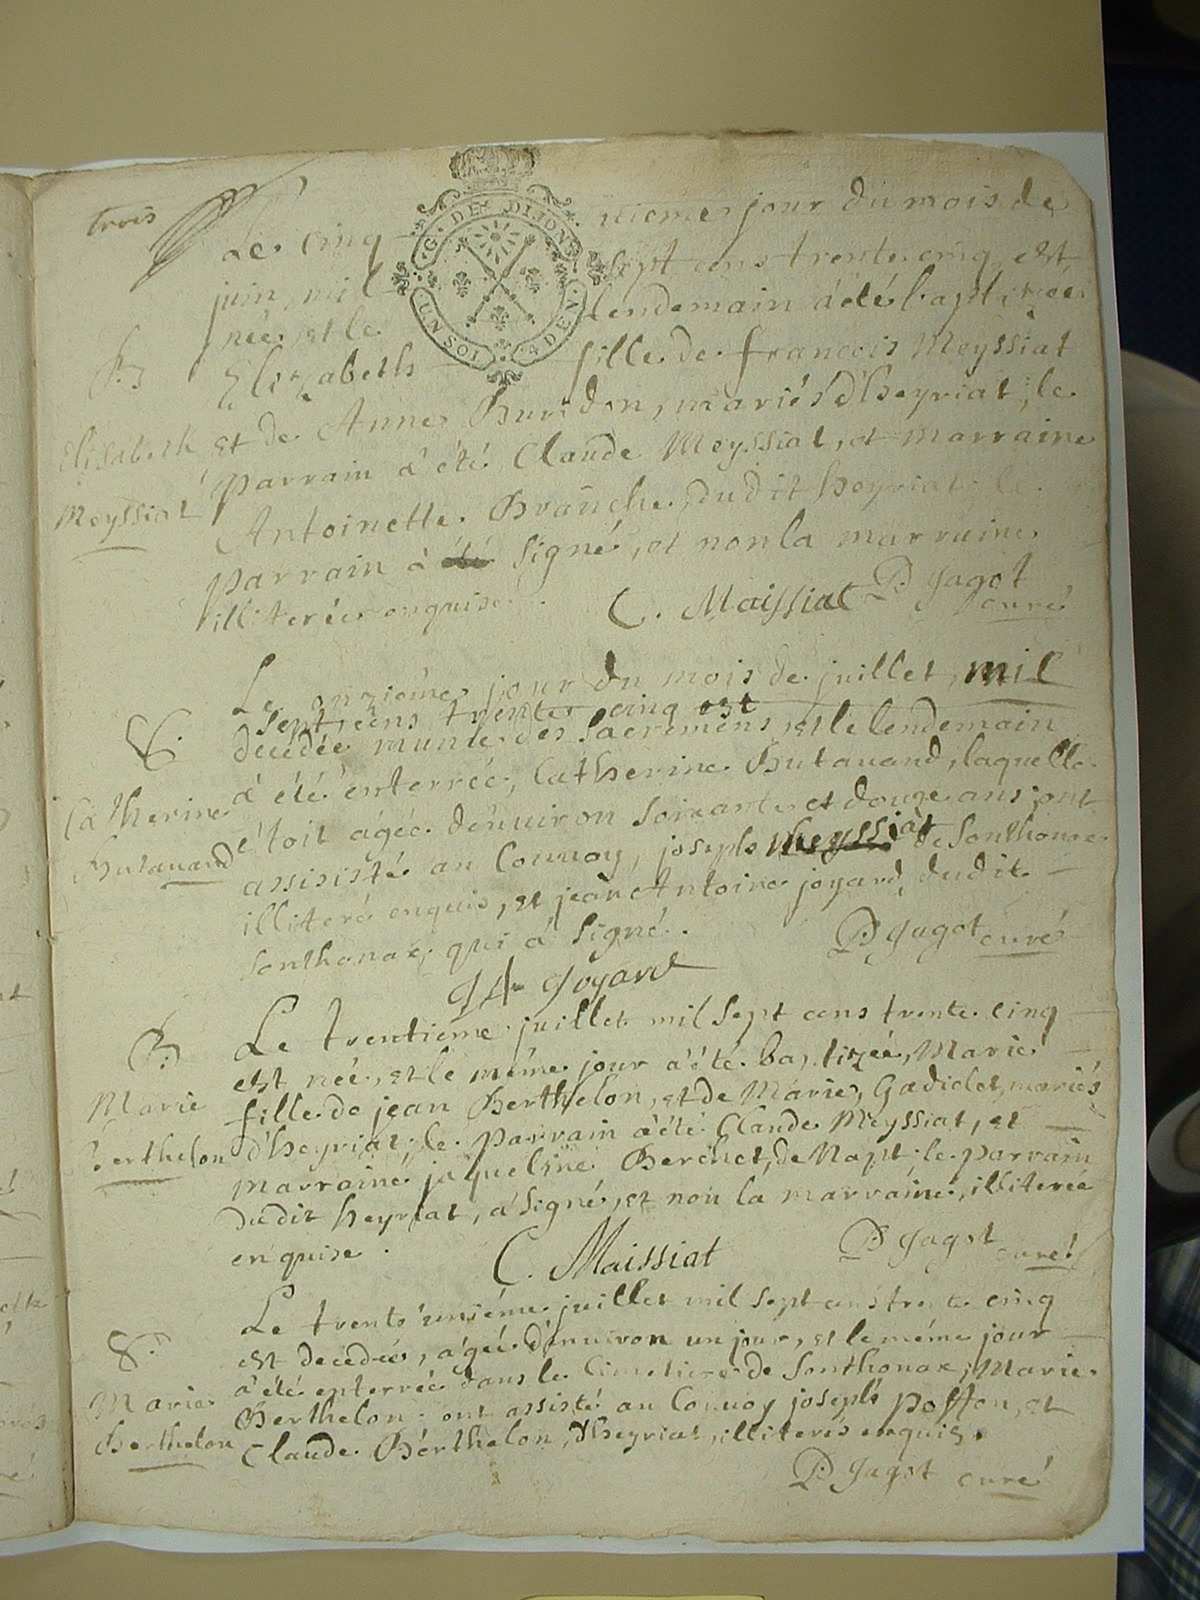 trois
Le cinq uieme jour du mois de
G. DE DIJON
UN SOL 4 DEN
juin, mil sept cens trente cinq est
née, et le lendemain à eté baptizée
B.
Elizabeth fille de françois Meyssiat
Elisabeth
Meyssiat
et de Anne Buridon, mariés d'heyriat, le
parrain à été Claude Meyssiat, et marraine
Antoinette Branche, dudit heyriat le
parrain à signé, et non la marraine
illiterée enquise.
C. Maissiat P. Jagot
curé
Le onzième jour du mois de juillet, mil
sept cens trente cinq est
S.
decedée munie des sacremens, et le lendemain
Catherine
Butavand
à été enterrée, Catherine Butavand, laquelle
étoit agée d'environ soixante et douze ans; ont
assisté au Convoy, joseph Meyssiat de Sonthonax
illiteré enquis, et jean Antoine joyard, dudit
Sonthonax, qui à signé.
P. Jagot curé
J An Joyard
B.
Marie
Berthelon
Le trentième juillet mil sept cens trente cinq
est née, et le même jour à été baptizée, Marie
fille de jean Berthelon, et de Marie Gadiolet, mariés
d'heyriat; le parrain à été Claude Meyssiat, et
marraine jaqueline Berchet, de Napt; le parrain
dudit heyriat, à signé, et non la marraine, illiterée
enquise.
C. Maissiat P. Jagot
curé
S.
Marie
Berthelon
Le trente unième juillet mil sept cens trente cinq
est decedée, agée d'environ un jour, et le même jour
à été enterrée dans le Cimetiere de Sonthonax, Marie
Berthelon: ont assisté au Convoy joseph Poffon, et
Claude Berthelon, d'heyriat, illiterés enquis.
P. Jagot curé